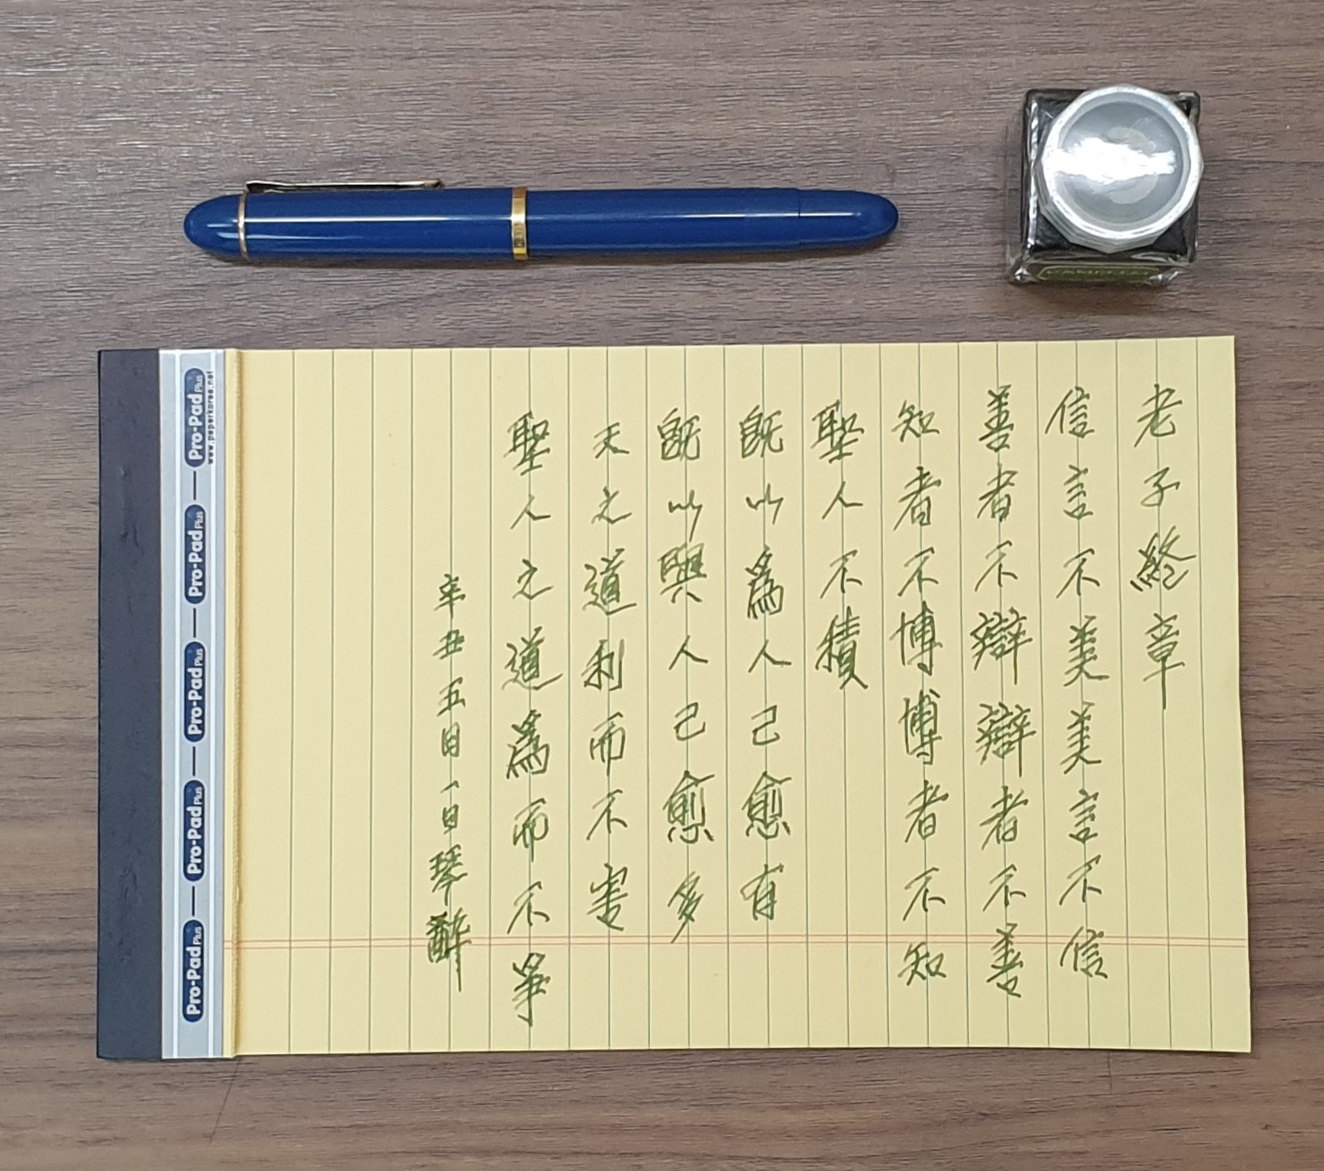 老子終章
信言不美美言不信
善者不辯辯者不善
知者不博博者不知
聖人不積
既以爲人己愈有
既以與人己愈多
天之道利而不害
聖人之道爲而不爭
辛丑五月一日琴醉
Pro-Pad Plus — Pro-Pad Plus — Pro-Pad Plus — Pro-Pad Plus — Pro-Pad Plus